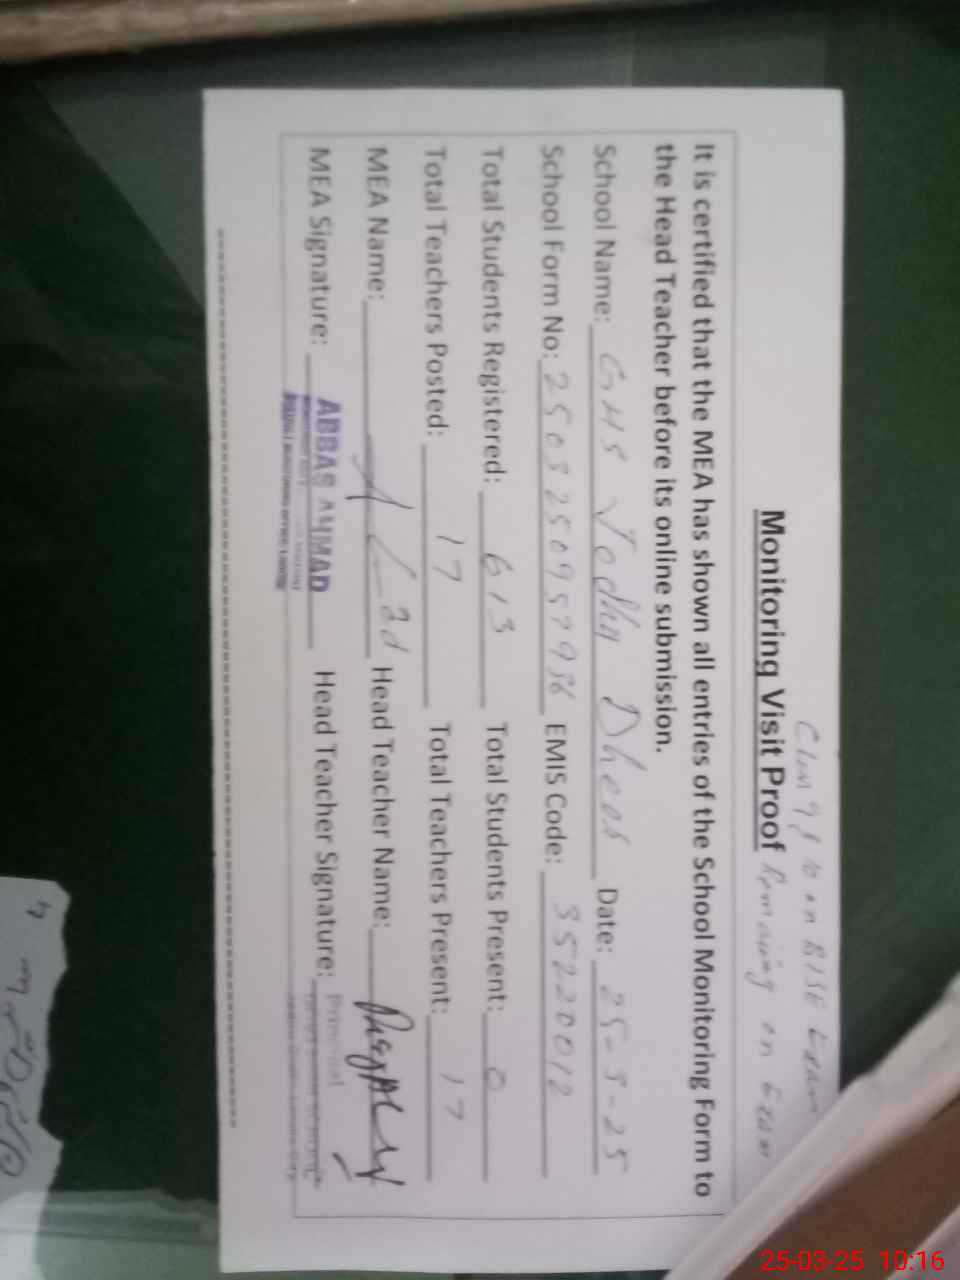 Monitoring Visit Proof
It is certified that the MEA has shown all entries of the School Monitoring Form to
the Head Teacher before its online submission.
School Name: GHS Jodhu Dheer Date: 25-3-25
School Form No: 2503250957936 EMIS Code: 35220012
Total Students Registered: 613 Total Students Present: 0
Total Teachers Posted: 17 Total Teachers Present: 17
MEA Name: Head Teacher Name:
MEA Signature: ABBAS AHMAD Head Teacher Signature: Principal
25-03-25 10:16